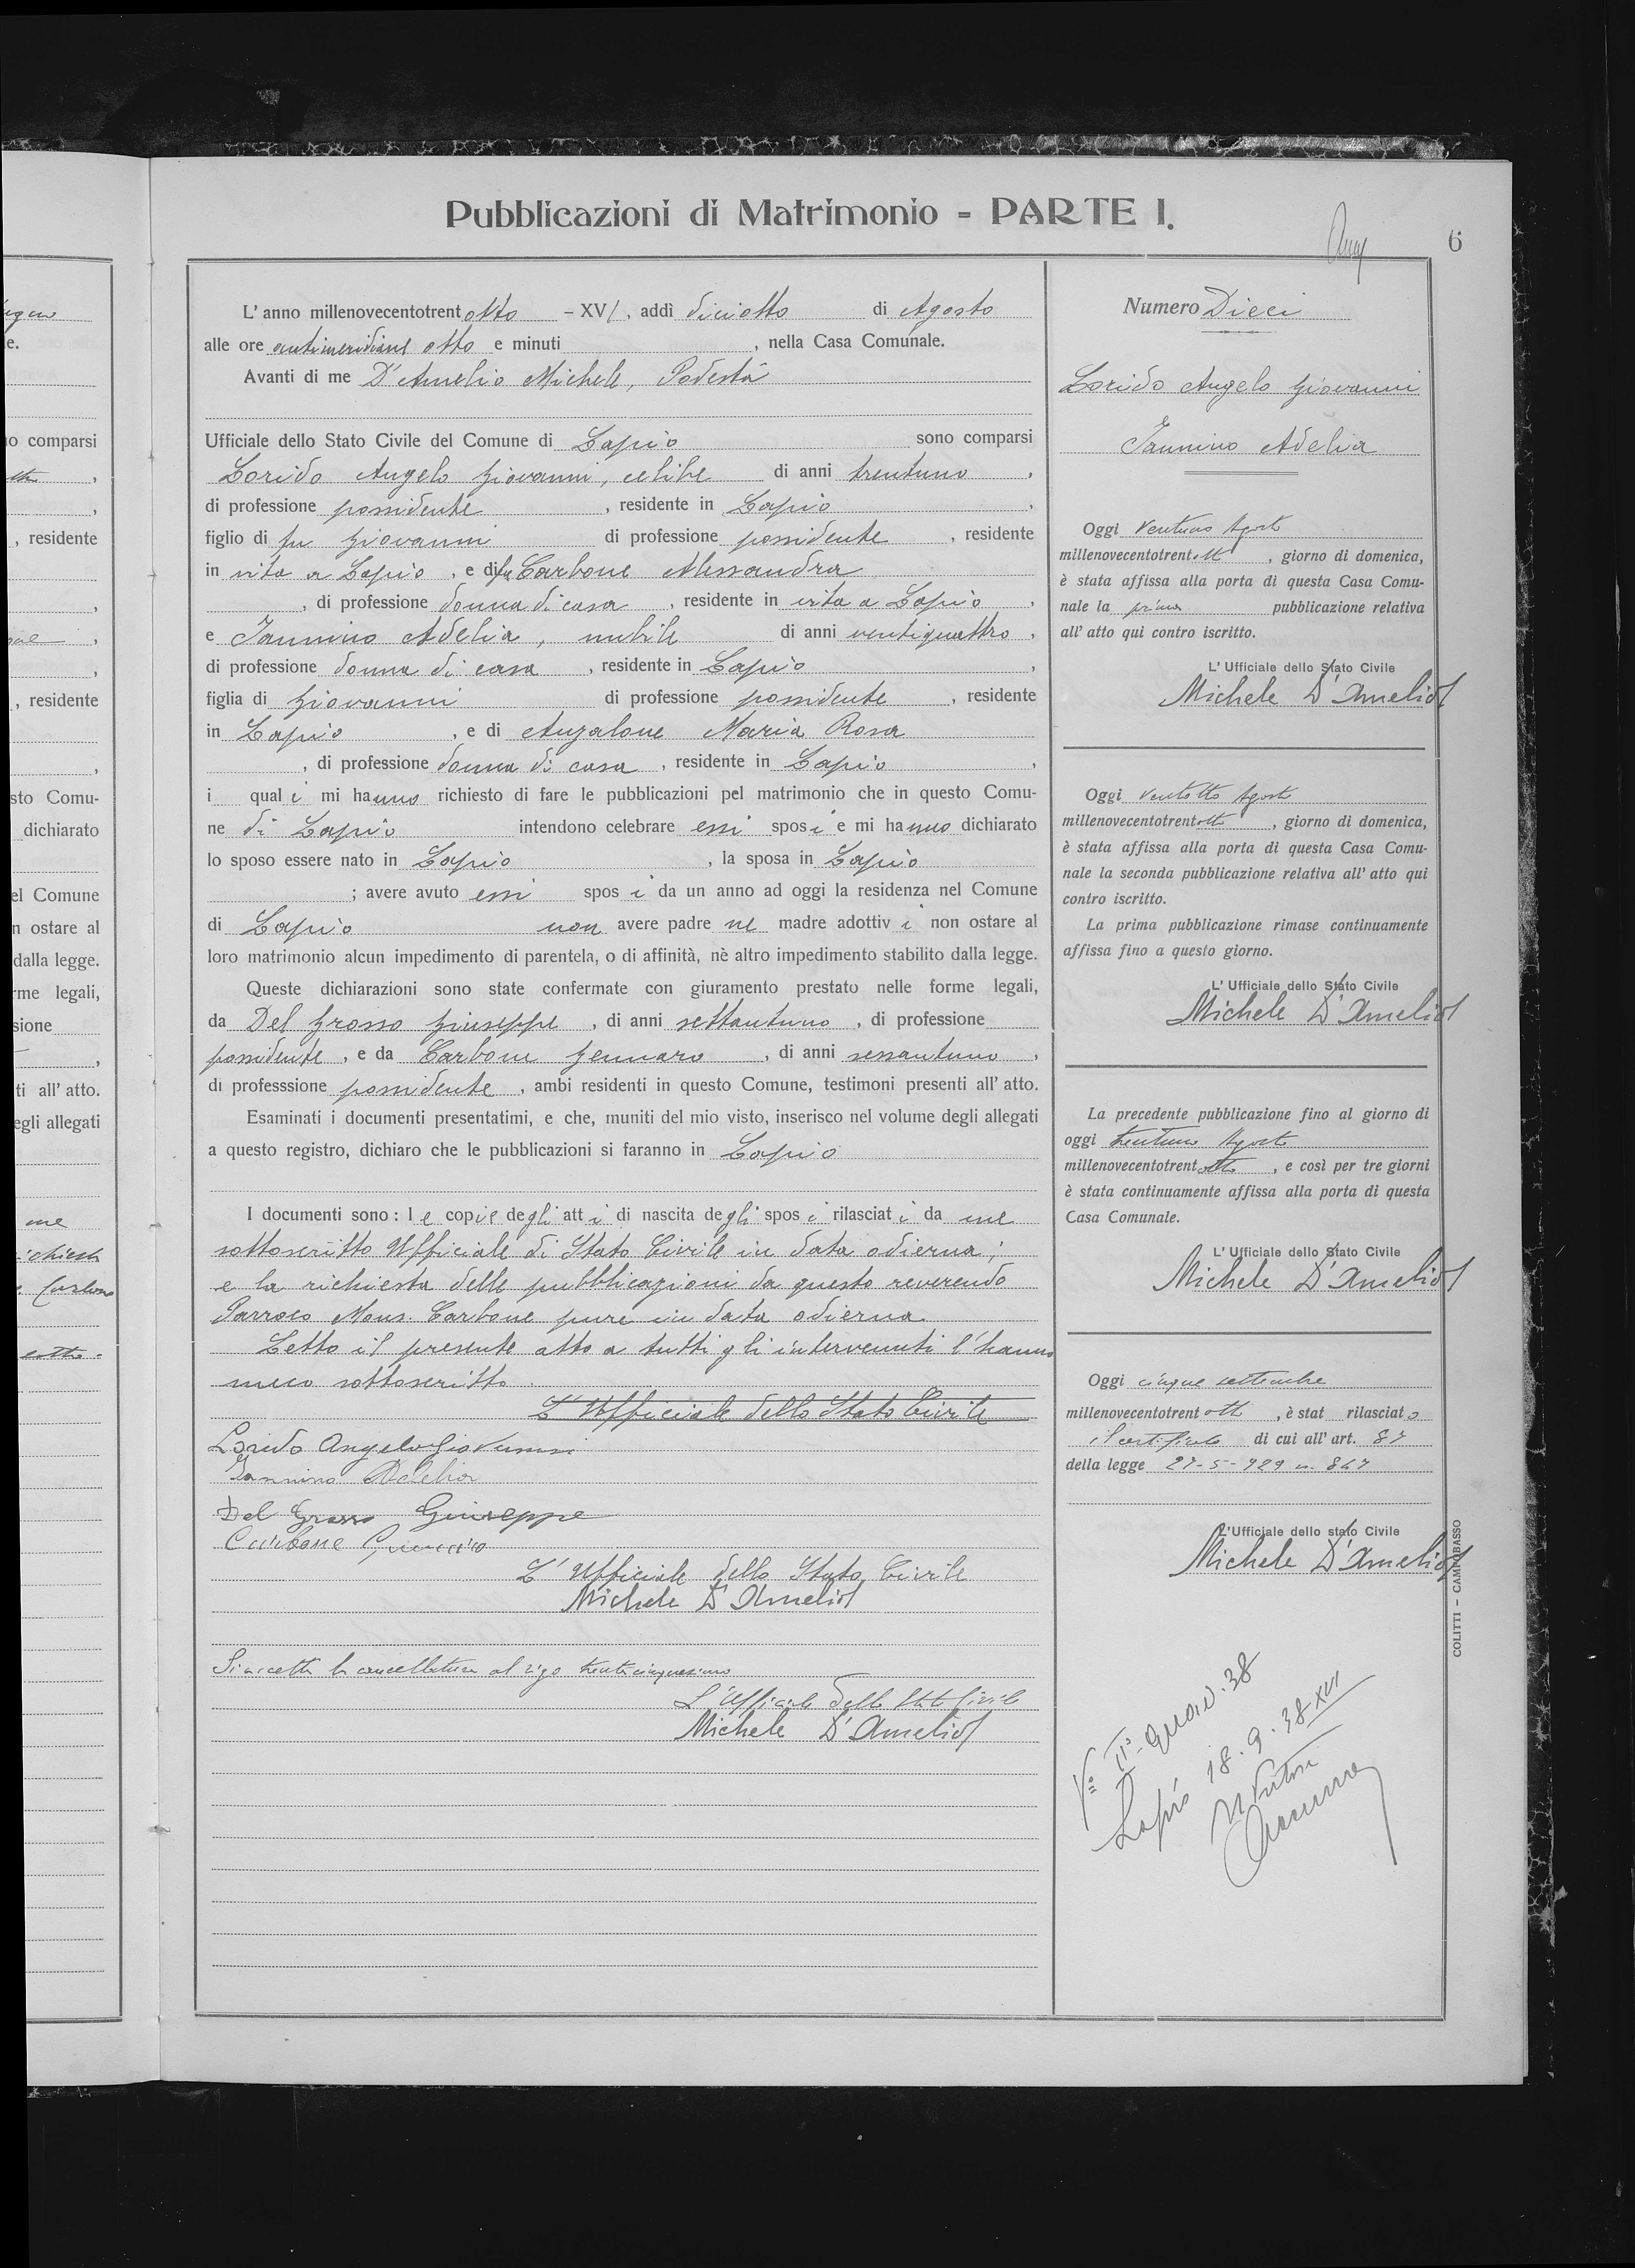 Pubblicazioni di Matrimonio - PARTE I.
6
L'anno millenovecentotrent otto - XVI, addì diciotto di Agosto
alle ore antimeridiane otto e minuti , nella Casa Comunale.
Avanti di me D'Amelio Michele, Podestà
Ufficiale dello Stato Civile del Comune di Lapio sono comparsi
Lorido Angelo Giovanni, celibe di anni trentuno,
di professione possidente, residente in Lapio,
figlio di fu Giovanni di professione possidente, residente
in vita a Lapio, e di fu Carbone Alessandra
, di professione donna di casa, residente in vita a Lapio,
e Iannino Adelia, nubile di anni ventiquattro,
di professione donna di casa, residente in Lapio,
figlia di Giovanni di professione possidente, residente
in Lapio, e di Anzalone Maria Rosa
, di professione donna di casa, residente in Lapio,
i quali mi hanno richiesto di fare le pubblicazioni pel matrimonio che in questo Comu-
ne di Lapio intendono celebrare essi sposi e mi hanno dichiarato
lo sposo essere nato in Lapio, la sposa in Lapio
; avere avuto essi sposi da un anno ad oggi la residenza nel Comune
di Lapio non avere padre ne madre adottivi non ostare al
loro matrimonio alcun impedimento di parentela, o di affinità, nè altro impedimento stabilito dalla legge.
Queste dichiarazioni sono state confermate con giuramento prestato nelle forme legali,
da Del Grosso Giuseppe, di anni settantuno, di professione
possidente, e da Carbone Gennaro, di anni sessantuno,
di professsione possidente, ambi residenti in questo Comune, testimoni presenti all'atto.
Esaminati i documenti presentatimi, e che, muniti del mio visto, inserisco nel volume degli allegati
a questo registro, dichiaro che le pubblicazioni si faranno in Lapio
I documenti sono: le copie degli atti di nascita degli sposi rilasciati da me
sottoscritto Ufficiale di Stato Civile in data odierna;
e la richiesta delle pubbblicazioni da questo reverendo
Parroco Mons. Carbone pure in data odierna
Letto il presente atto a tutti gli intervenuti l'hanno
meco sottoscritto.
L'Ufficiale dello Stato Civile
Lorido Angelo Giovanni
Iannino Adelia
Del Grosso Giuseppe
Carbone Gennaro
L'Ufficiale dello Stato Civile
Michele D'Amelio
Si accetta la cancellatura al rigo trentacinquesimo
L'Ufficiale dello Stato Civile
Michele D'Amelio
Numero Dieci
Lorido Angelo Giovanni
Iannino Adelia
Oggi Ventuno Agosto
millenovecentotrentotto, giorno di domenica,
è stata affissa alla porta di questa Casa Comu-
nale la prima pubblicazione relativa
all'atto qui contro iscritto.
L'Ufficiale dello Stato Civile
Michele D'Amelio
Oggi Ventotto Agosto
millenovecentotrentotto, giorno di domenica,
è stata affissa alla porta di questa Casa Comu-
nale la seconda pubblicazione relativa all'atto qui
contro iscritto.
La prima pubblicazione rimase continuamente
affissa fino a questo giorno.
L'Ufficiale dello Stato Civile
Michele D'Amelio
La precedente pubblicazione fino al giorno di
oggi trentuno Agosto
millenovecentotrentotto, e così per tre giorni
è stata continuamente affissa alla porta di questa
Casa Comunale.
L'Ufficiale dello Stato Civile
Michele D'Amelio
Oggi cinque settembre
millenovecentotrentotto, è stat rilasciato
il certificato di cui all'art. 87
della legge 27-5-929 n. 847
L'Ufficiale dello stato Civile
Michele D'Amelio
COLITTI - CAMPOBASSO
Lapio 18.9.38-XVI
Il Pretore
o comparsi
, residente
, residente
sto Comu-
dichiarato
el Comune
n ostare al
dalla legge.
rme legali,
sione
ti all'atto.
egli allegati
me